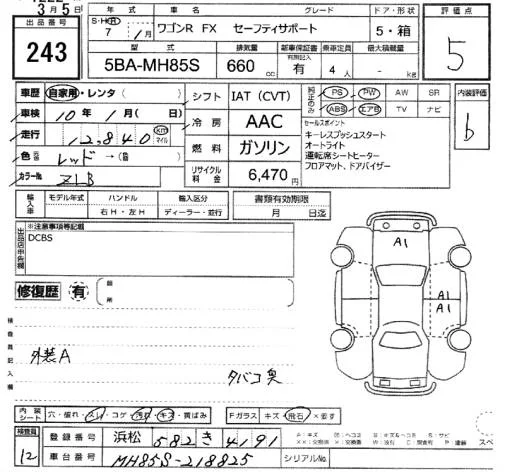 3月5日
年式 車名 グレード ドア・形状 評価点
出品番号 S・H・R 7 / 1月 ワゴンR FX セーフティサポート 5・箱
243
型式 排気量 新車保証書 乗車定員 最大積載量
5BA-MH85S 660cc 有無記入 有 4人 - kg 5
車歴 自家用・レンタ( ) シフト IAT (CVT) 純正のみ PS PW AW SR 内装評価
ABS エアB TV ナビ
車検 10年 1月( 日) 冷房 AAC セールスポイント b
キーレスプッシュスタート
走行 12,840 km マイル オートライト
燃料 ガソリン 運転席シートヒーター
色 レッド→( ) フロアマット、ドアバイザー
カラーNo. ZLB リサイクル料金 6,470円
輸入車 モデル年式 ハンドル 輸入区分 書類有効期限
年 右H・左H ディーラー・並行 月 日迄
※注意事項等記載
DCBS
A1
A1
A1
修復歴 有
検査員記入欄
外装A
タバコ臭
内装シート 穴・破れ・スレ・コゲ・汚れ・キズ・黄ばみ Fガラス キズ・飛石・要す
検査員 12 登録番号 浜松 582 き 4191
車台番号 MH85S-218825 シリアルNo.